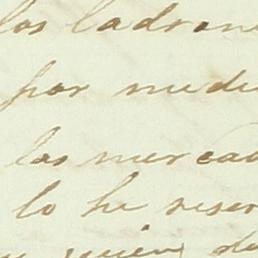 los ladron
por medi
las mercad
lo he reser
quien de